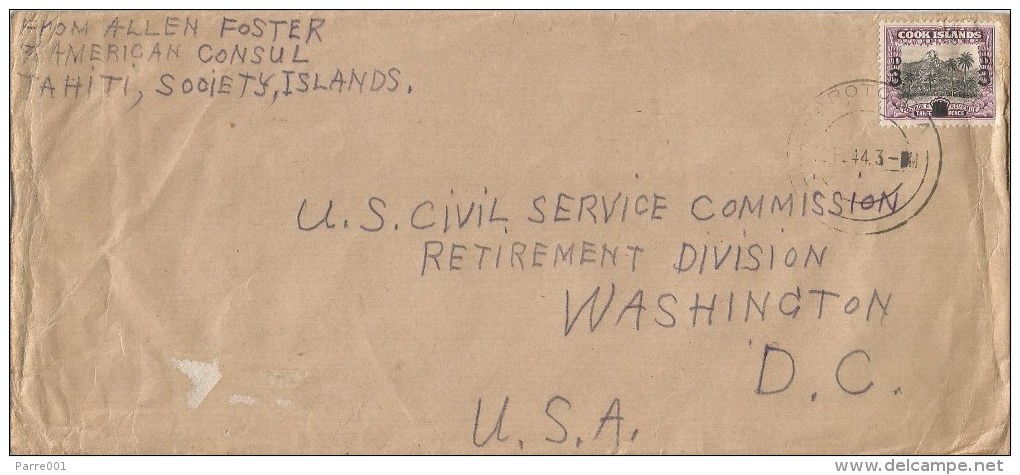 FROM ALLEN FOSTER
% AMERICAN CONSUL
TAHITI, SOCIETY, ISLANDS.
COOK ISLANDS
3D 3D
ROTO
44.3- M
U.S. CIVIL SERVICE COMMISSION
RETIREMENT DIVISION
WASHINGTON
D.C.
U.S.A.
Parre001
delcampe.net